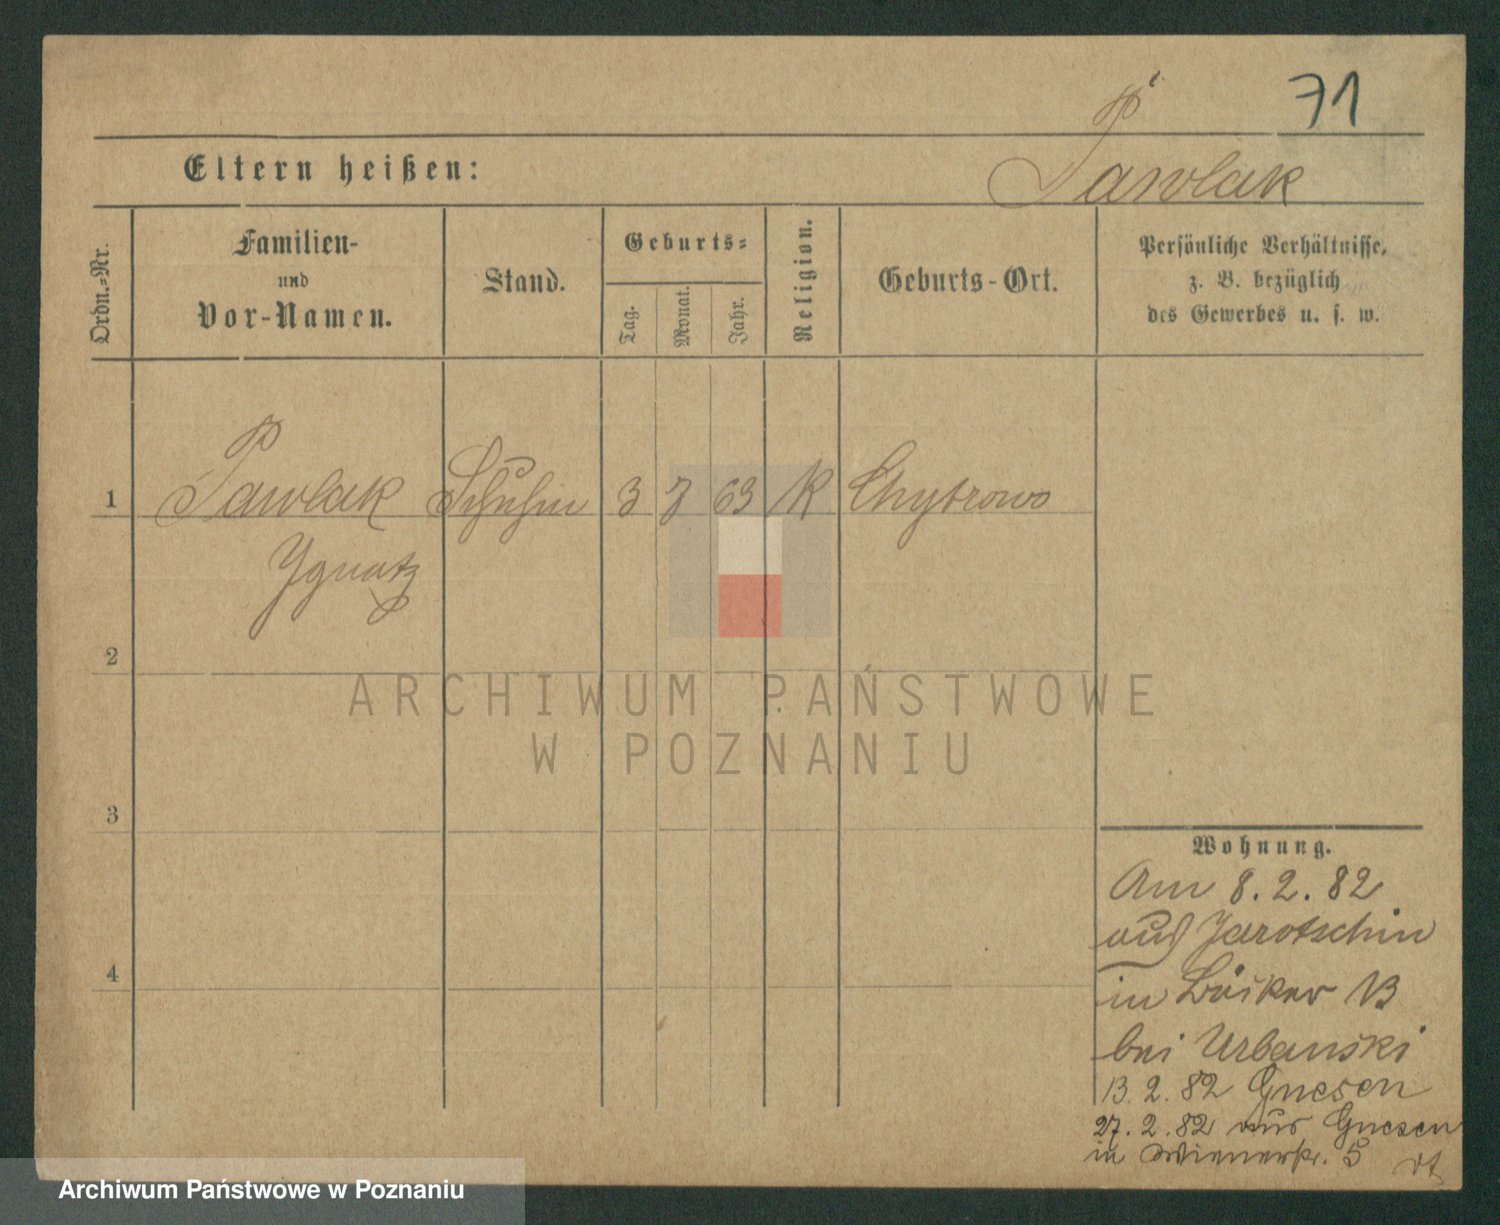 71
Pawlak
Eltern heißen:
Ordn.-Nr.
Familien-
und
Vor-Namen.
Stand.
Geburts-
Tag.
Monat.
Jahr.
Religion.
Geburts-Ort.
Persönliche Verhältnisse,
z. B. bezüglich
des Gewerbes u. s. w.
1 Pawlak 3 7 63 K Chybrowo
Ygnatz
2
3
4
Wohnung.
Am 8.2.82
aus Jarotschin
in Bäcker 13
bei Urbanski
13.2.82 Gnesen
27.2.82 aus Gnesen
in Wienerstr. 5
ARCHIWUM PAŃSTWOWE
W POZNANIU
Archiwum Państwowe w Poznaniu